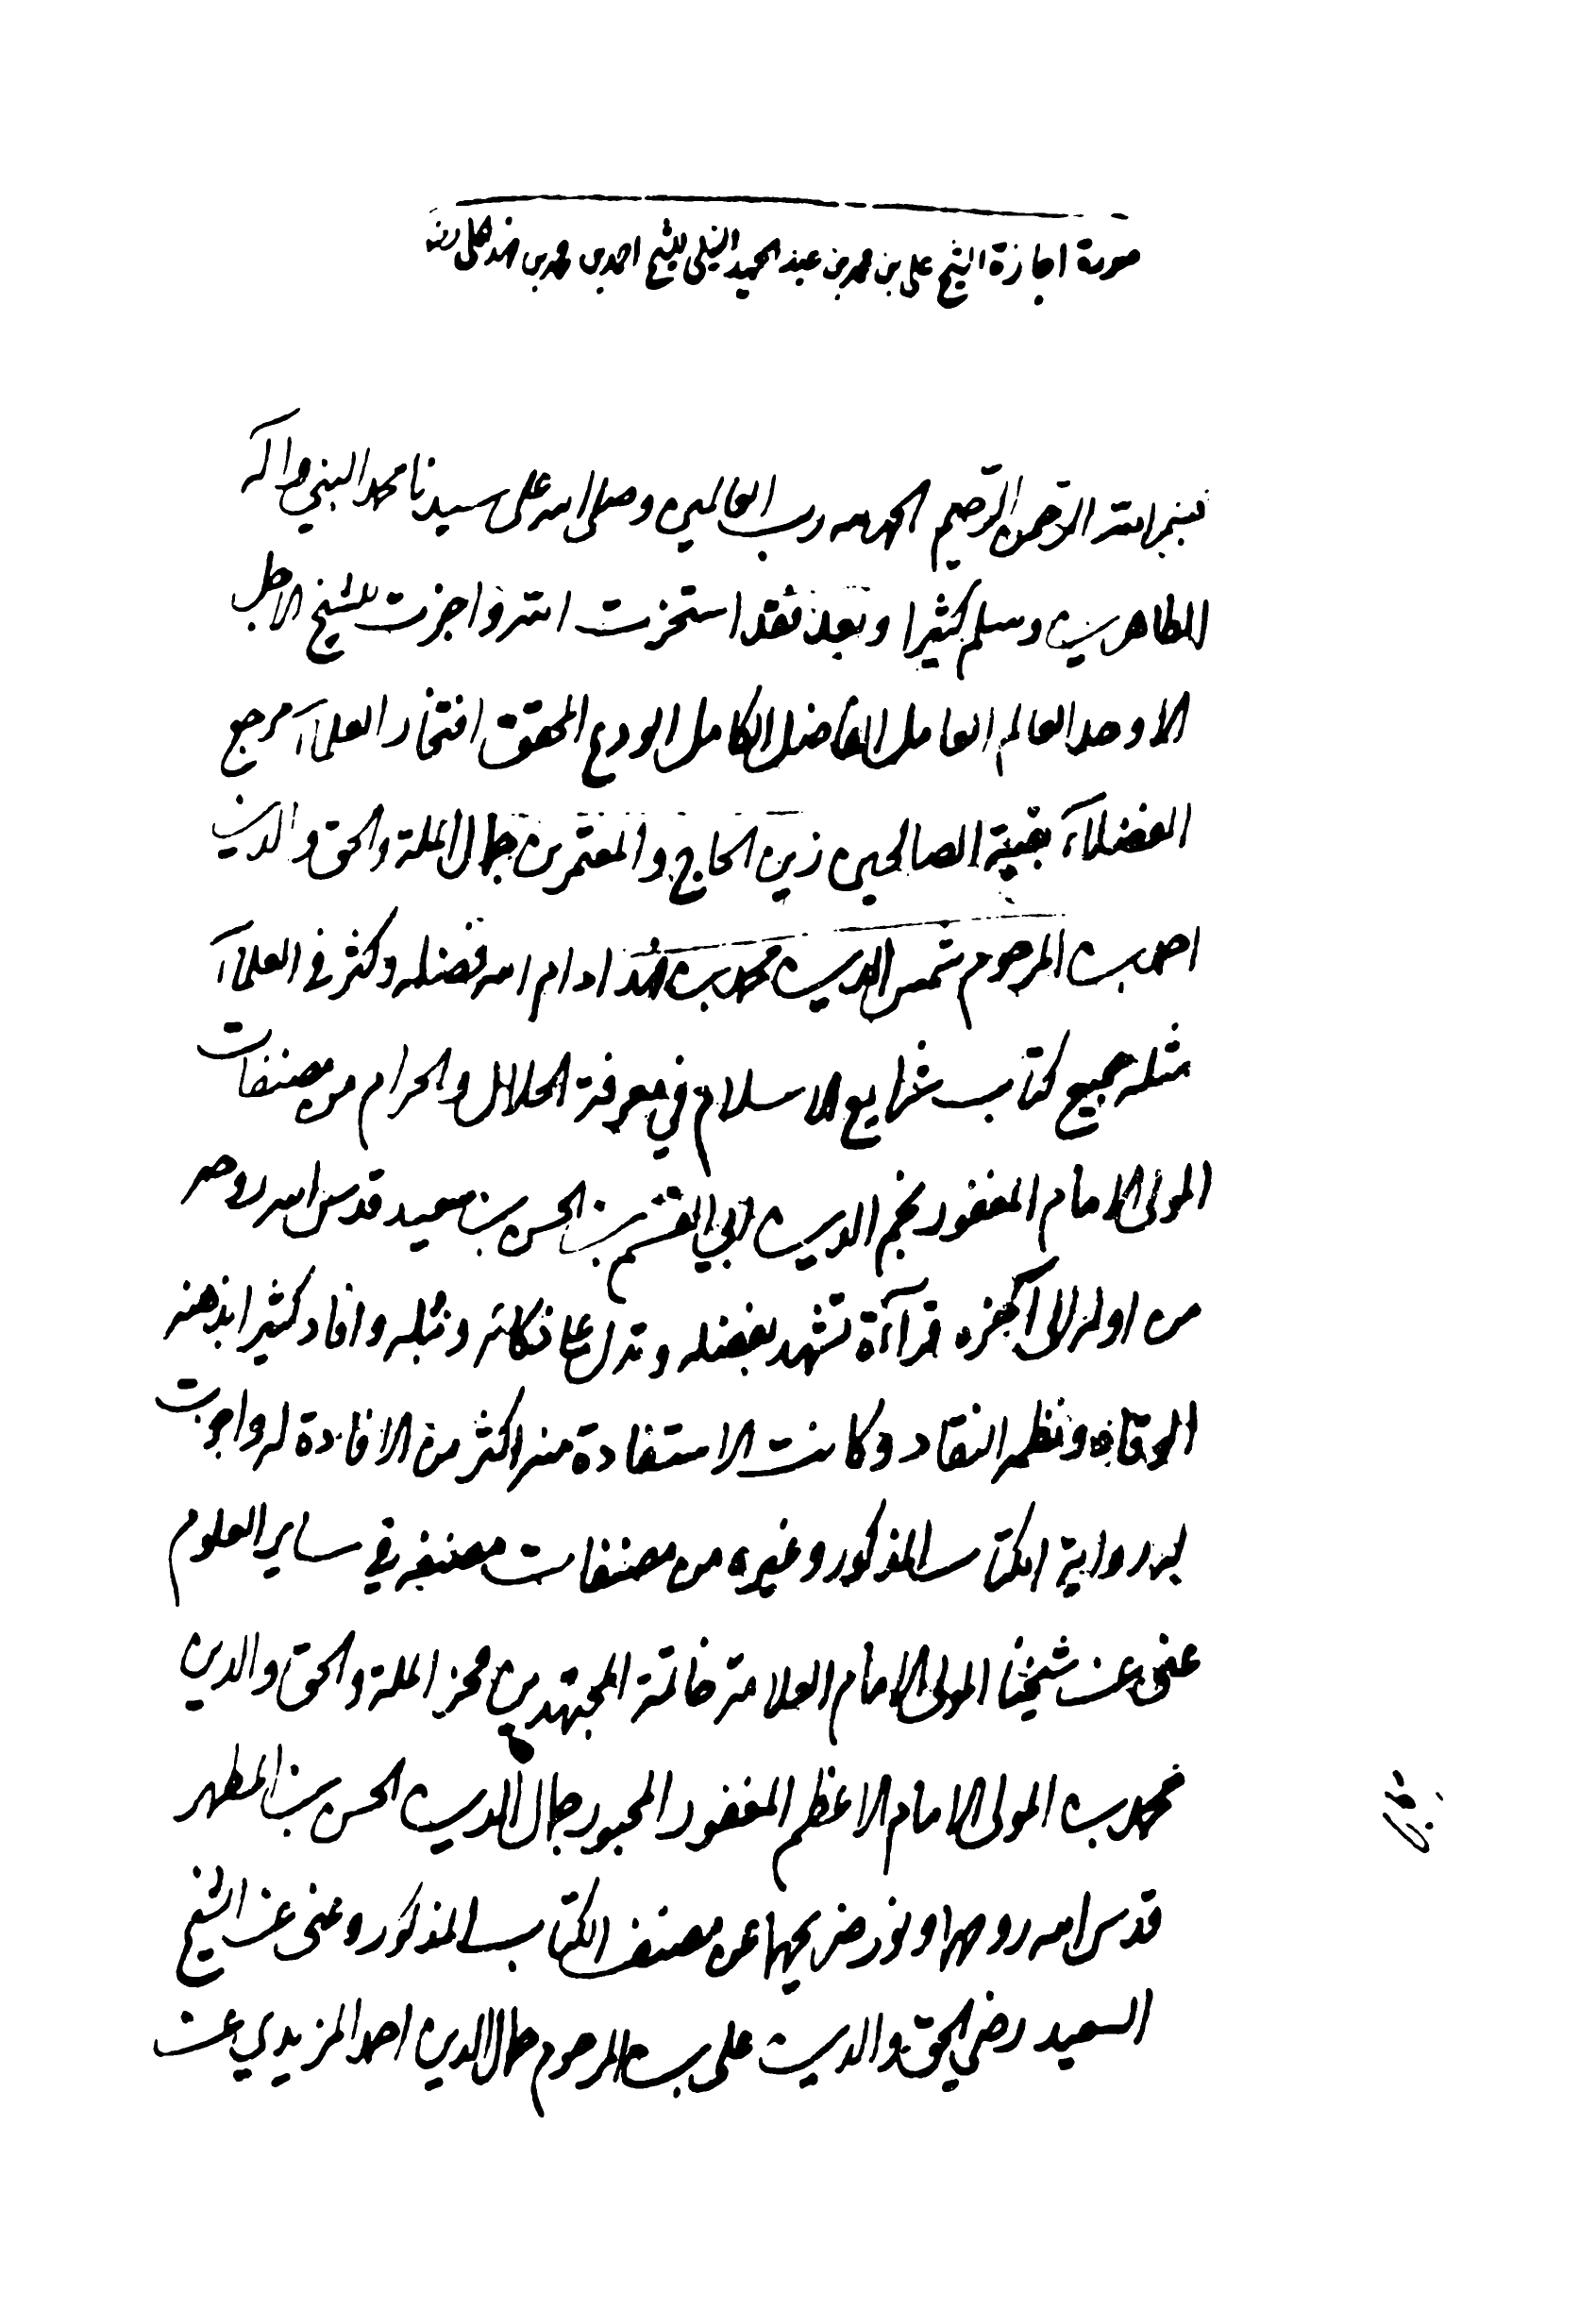 صورة اجازة الشيخ علي بن محمد بن عبد الحميد النيلي للشيخ احمد بن محمد بن فهد الحلي
بسم الله الرحمن الرحيم الحمد لله رب العالمين وصلى الله على سيدنا محمد النبي واله
الطاهرين وسلم كثيرا وبعد فقد استخرت الله واجزت للشيخ الاجل
الاوحد العالم العامل الفاضل الكامل الورع المحقق افتخار العلماء مرجع
الفضلاء بقية الصالحين زين الحاج والمعتمرين جمال الملة والحق والدين
احمد بن المرحوم شمس الدين محمد بن فهد ادام الله فضله وكثر في العلماء
مثله جميع كتاب شرايع الاسلام في معرفة الحلال والحرام من مصنفات
المولى الامام المغفور نجم الدين ابي القسم بن الحسن بن سعيد قدس الله روحه
من اوله الى آخره قراءة تشهد بفضله وتدل على ذكائه ونبله وافاد كثيرا بذهنه
الوقاد ونظمه النقاد وكانت الاستفادة منه اكثر من الافادة له واجزت
له رواية الكتاب المذكور وغيره من مصنفات مصنفه في ساير العلوم
عني عن شيخنا المولى الامام العلامة خاتمة المجتهدين فخر الملة والحق والدين
محمد بن المولى الامام الاعظم المغفور المحبور جمال الدين الحسن بن المطهر
قدس الله روحهما ونور ضريحهما عن مصنف الكتاب المذكور وعني عن الشيخ
السعيد رضي الحق والدين علي بن المرحوم جمال الدين احمد المزيدي عن